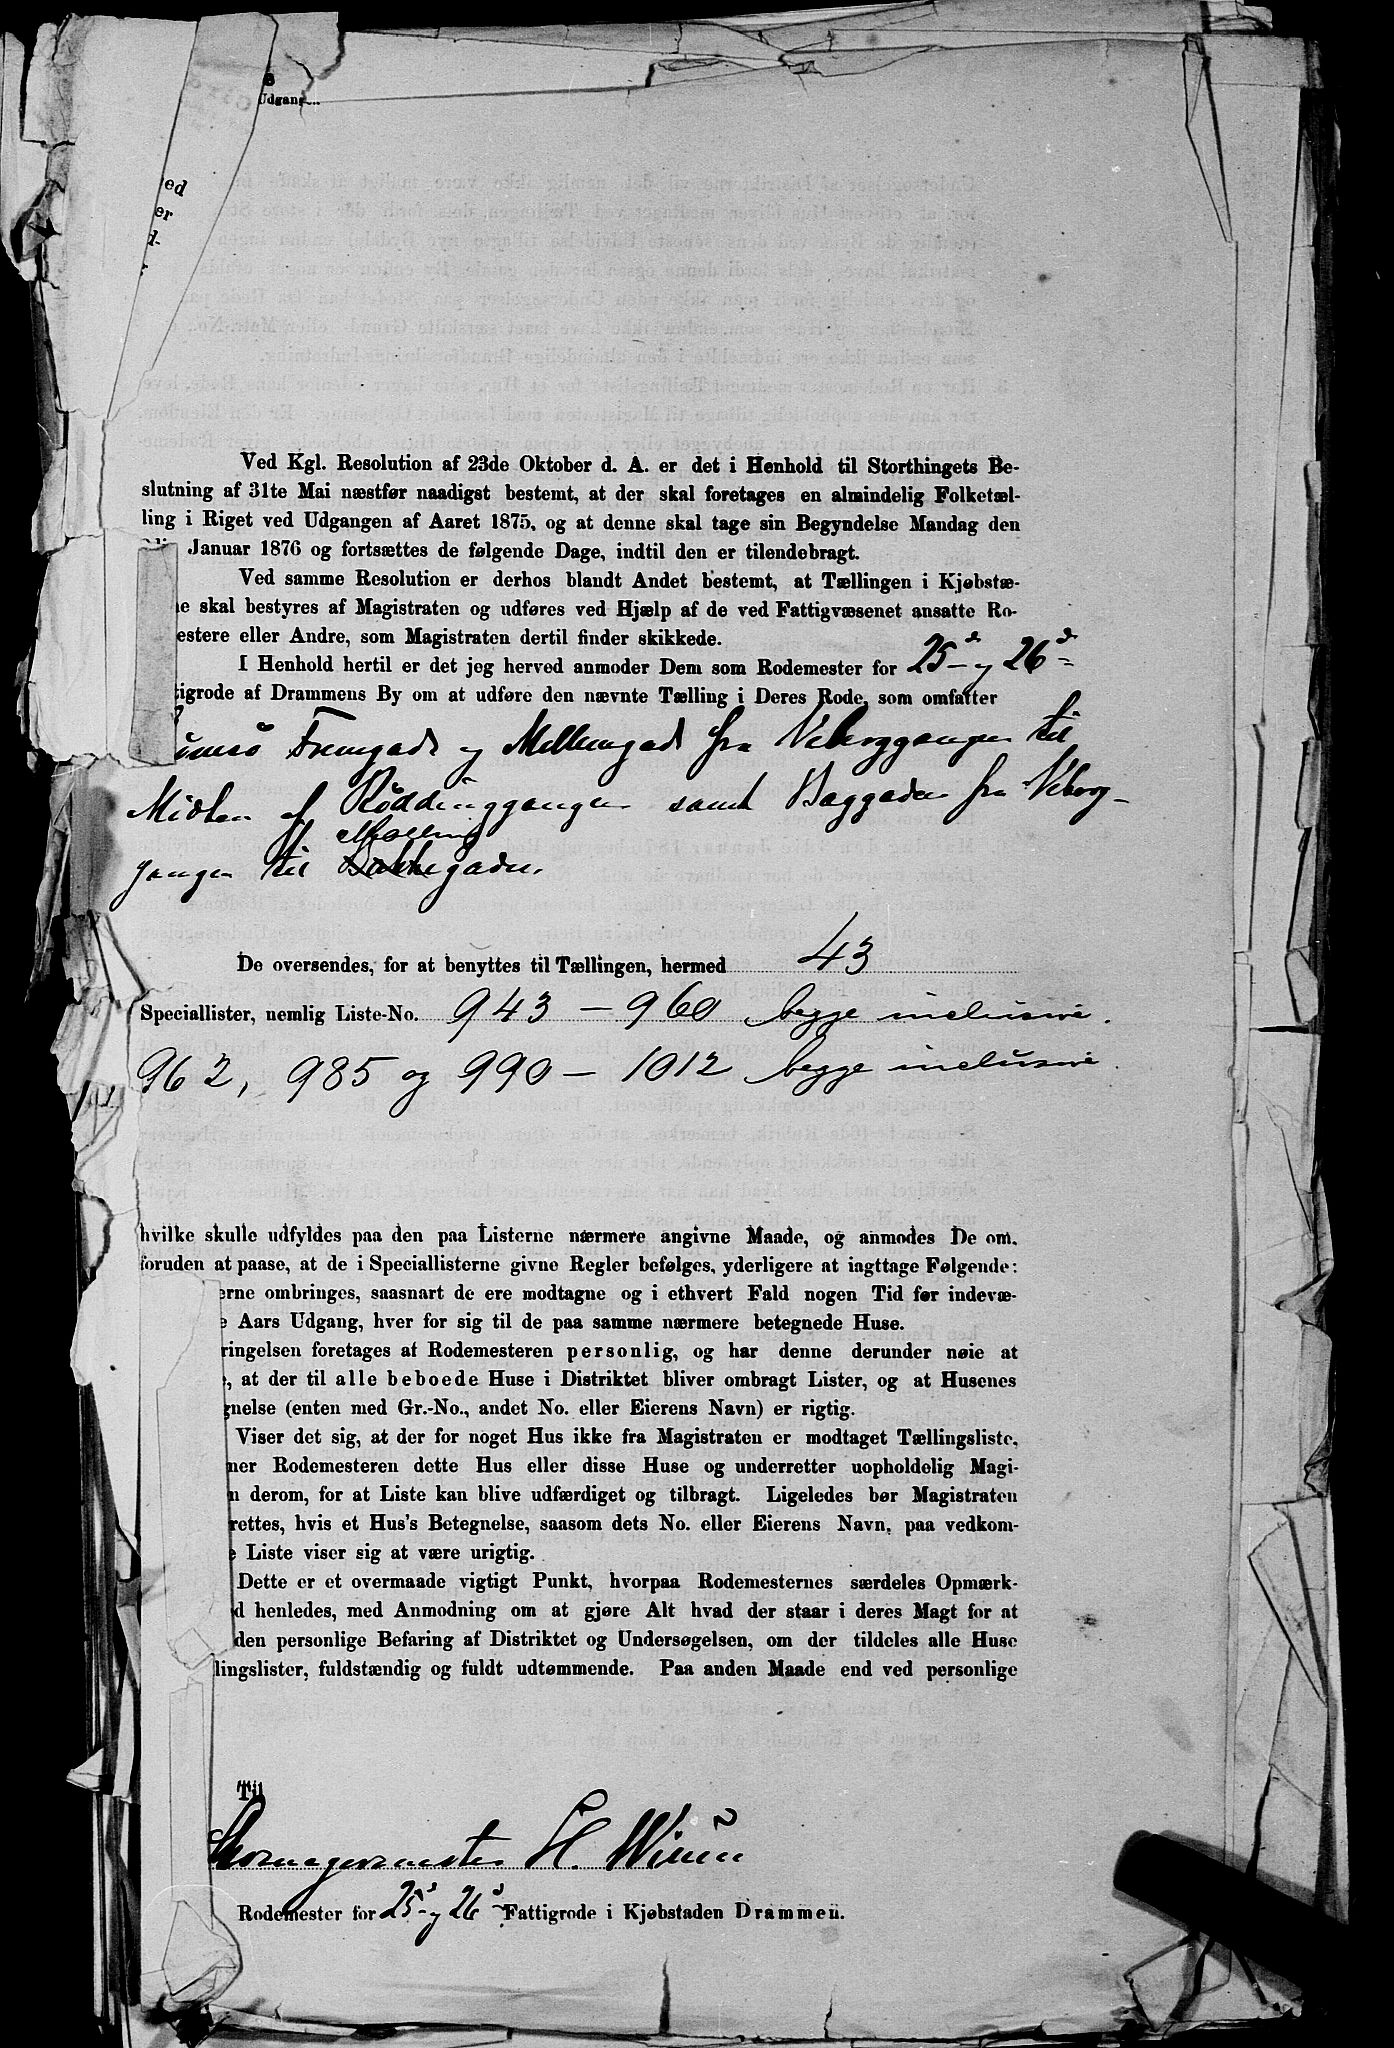 Udgang
ed
er
d-
Ved Kgl. Resolution af 23de Oktober d. A. er det i Henhold til Storthingets Be-
slutning af 31te Mai næstfør naadigst bestemt, at der skal foretages en almindelig Folketæl-
ling i Riget ved Udgangen af Aaret 1875, og at denne skal tage sin Begyndelse Mandag den
Januar 1876 og fortsættes de følgende Dage, indtil den er tilendebragt.
Ved samme Resolution er derhos blandt Andet bestemt, at Tællingen i Kjøbstæ-
ne skal bestyres af Magistraten og udføres ved Hjælp af de ved Fattigvæsenet ansatte Ro-
estere eller Andre, som Magistraten dertil finder skikkede.
I Henhold hertil er det jeg herved anmoder Dem som Rodemester for 25d og 26d
tigrode af Drammens By om at udføre den nævnte Tælling i Deres Rode, som omfatter
Fremgade og Mellemgade fra Viborggangen til
Midten af Røddinggangen samt Baggaden fra Viborg-
gangen til Bakkegaden.
De oversendes, for at benyttes til Tællingen, hermed 43
Speciallister, nemlig Liste-No. 943 – 960 begge inclusive.
962, 985 og 990 – 1012 begge inclusive.
hvilke skulle udfyldes paa den paa Listerne nærmere angivne Maade, og anmodes De om,
foruden at paase, at de i Speciallisterne givne Regler befølges, yderligere at iagttage Følgende:
erne ombringes, saasnart de ere modtagne og i ethvert Fald nogen Tid før indevæ-
e Aars Udgang, hver for sig til de paa samme nærmere betegnede Huse.
ringelsen foretages af Rodemesteren personlig, og har denne derunder nøie at
, at der til alle beboede Huse i Distriktet bliver ombragt Lister, og at Husenes
gnelse (enten med Gr.-No., andet No. eller Eierens Navn) er rigtig.
Viser det sig, at der for noget Hus ikke fra Magistraten er modtaget Tællingsliste,
ner Rodemesteren dette Hus eller disse Huse og underretter uopholdelig Magi-
n derom, for at Liste kan blive udfærdiget og tilbragt. Ligeledes bør Magistraten
rettes, hvis et Hus's Betegnelse, saasom dets No. eller Eierens Navn, paa vedkom-
e Liste viser sig at være urigtig.
Dette er et overmaade vigtigt Punkt, hvorpaa Rodemesternes særdeles Opmærk-
d henledes, med Anmodning om at gjøre Alt hvad der staar i deres Magt for at
den personlige Befaring af Distriktet og Undersøgelsen, om der tildeles alle Huse
lingslister, fuldstændig og fuldt udtømmende. Paa anden Maade end ved personlige
Til
Skomagermester H. Wiun
Rodemester for 25d og 26d Fattigrode i Kjøbstaden Drammen.